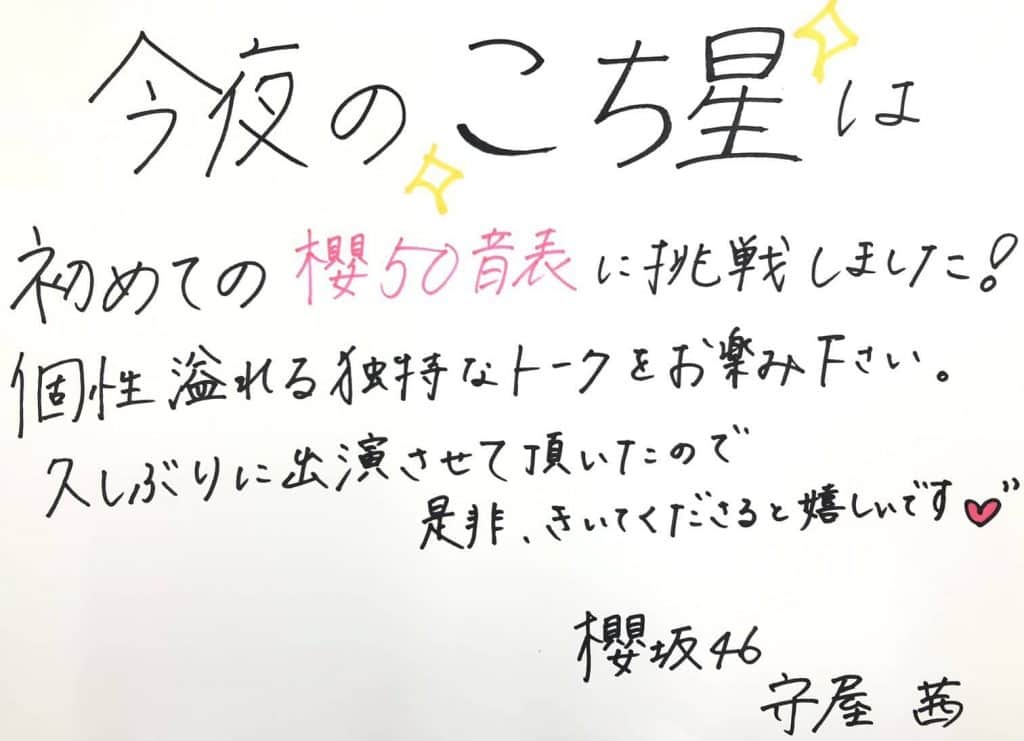 今夜のこち星は
初めての櫻50音表に挑戦しました!
個性溢れる独特なトークをお楽み下さい。
久しぶりに出演させて頂いたので
是非、きいてくださると嬉しいです
櫻坂46
守屋 茜